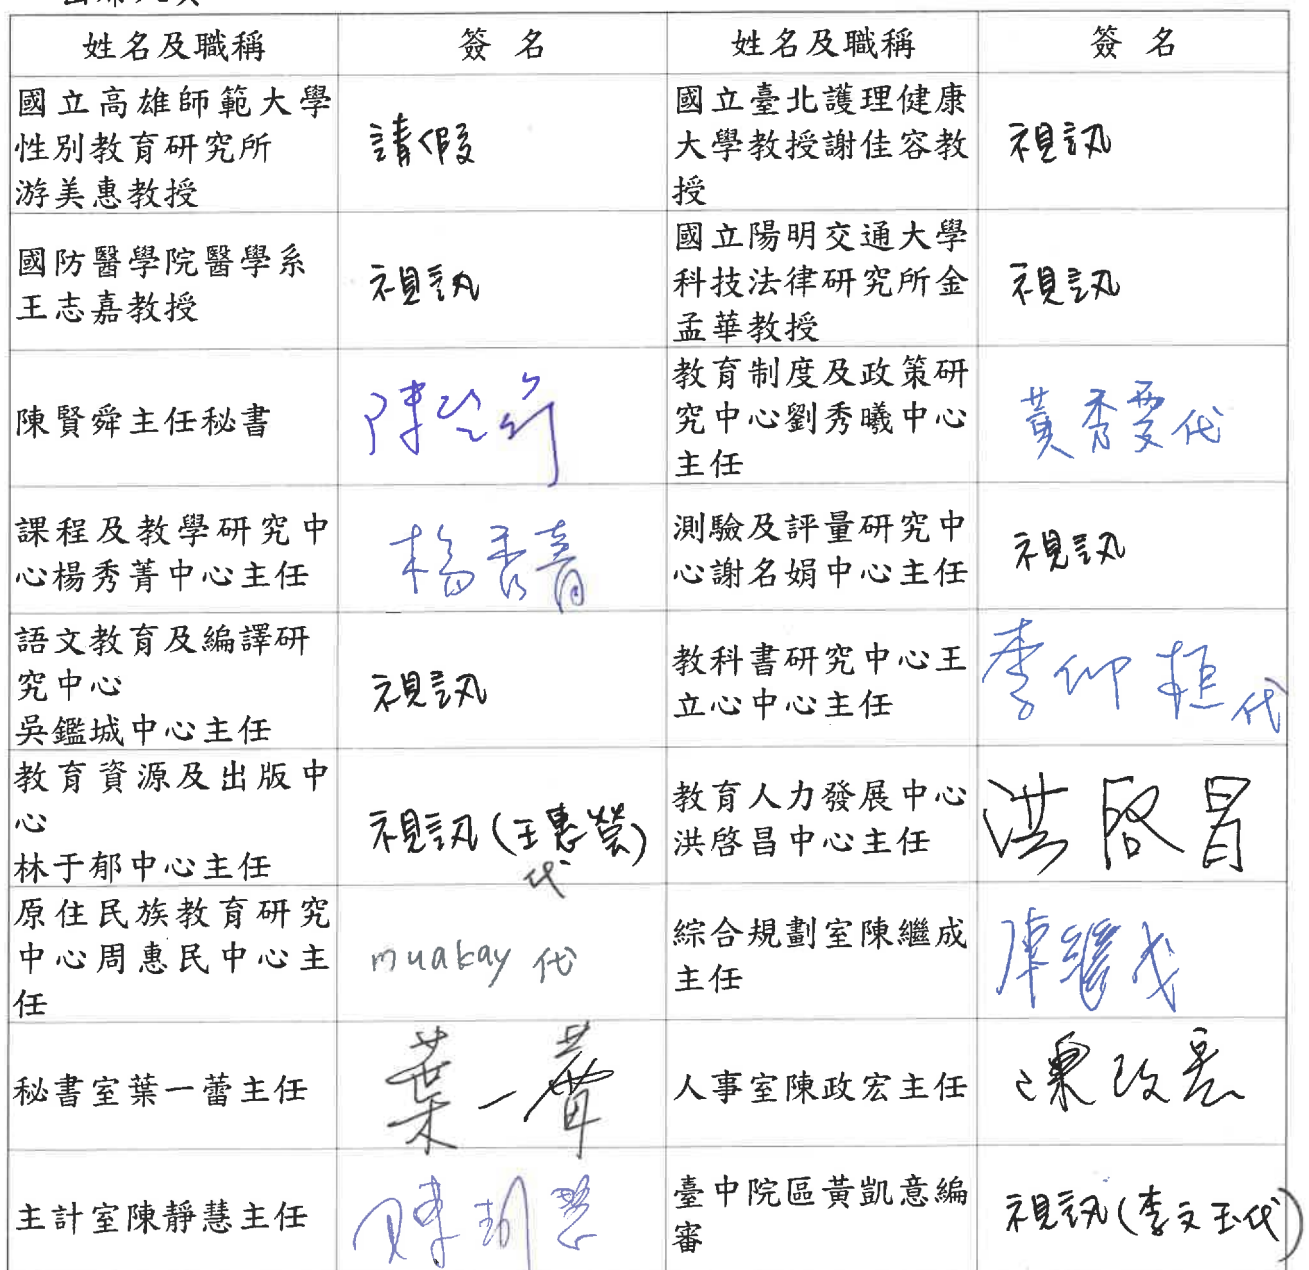 姓名及職稱 簽 名 姓名及職稱 簽 名
國立高雄師範大學
性別教育研究所
游美惠教授
請假
國立臺北護理健康
大學教授謝佳容教
授
視訊
國防醫學院醫學系
王志嘉教授
視訊
國立陽明交通大學
科技法律研究所金
孟華教授
視訊
陳賢舜主任秘書
教育制度及政策研
究中心劉秀曦中心
主任
黃秀雯代
課程及教學研究中
心楊秀菁中心主任
楊秀菁
測驗及評量研究中
心謝名娟中心主任
視訊
語文教育及編譯研
究中心
吳鑑城中心主任
視訊
教科書研究中心王
立心中心主任
李仰桓代
教育資源及出版中
心
林于郁中心主任
視訊(王惠瑩)
代
教育人力發展中心
洪啓昌中心主任
洪啓昌
原住民族教育研究
中心周惠民中心主
任
muakay 代
綜合規劃室陳繼成
主任
陳繼成
秘書室葉一蕾主任
葉一蕾
人事室陳政宏主任
陳政宏
主計室陳靜慧主任
陳靜慧
臺中院區黃凱意編
審
視訊(李文玉代)